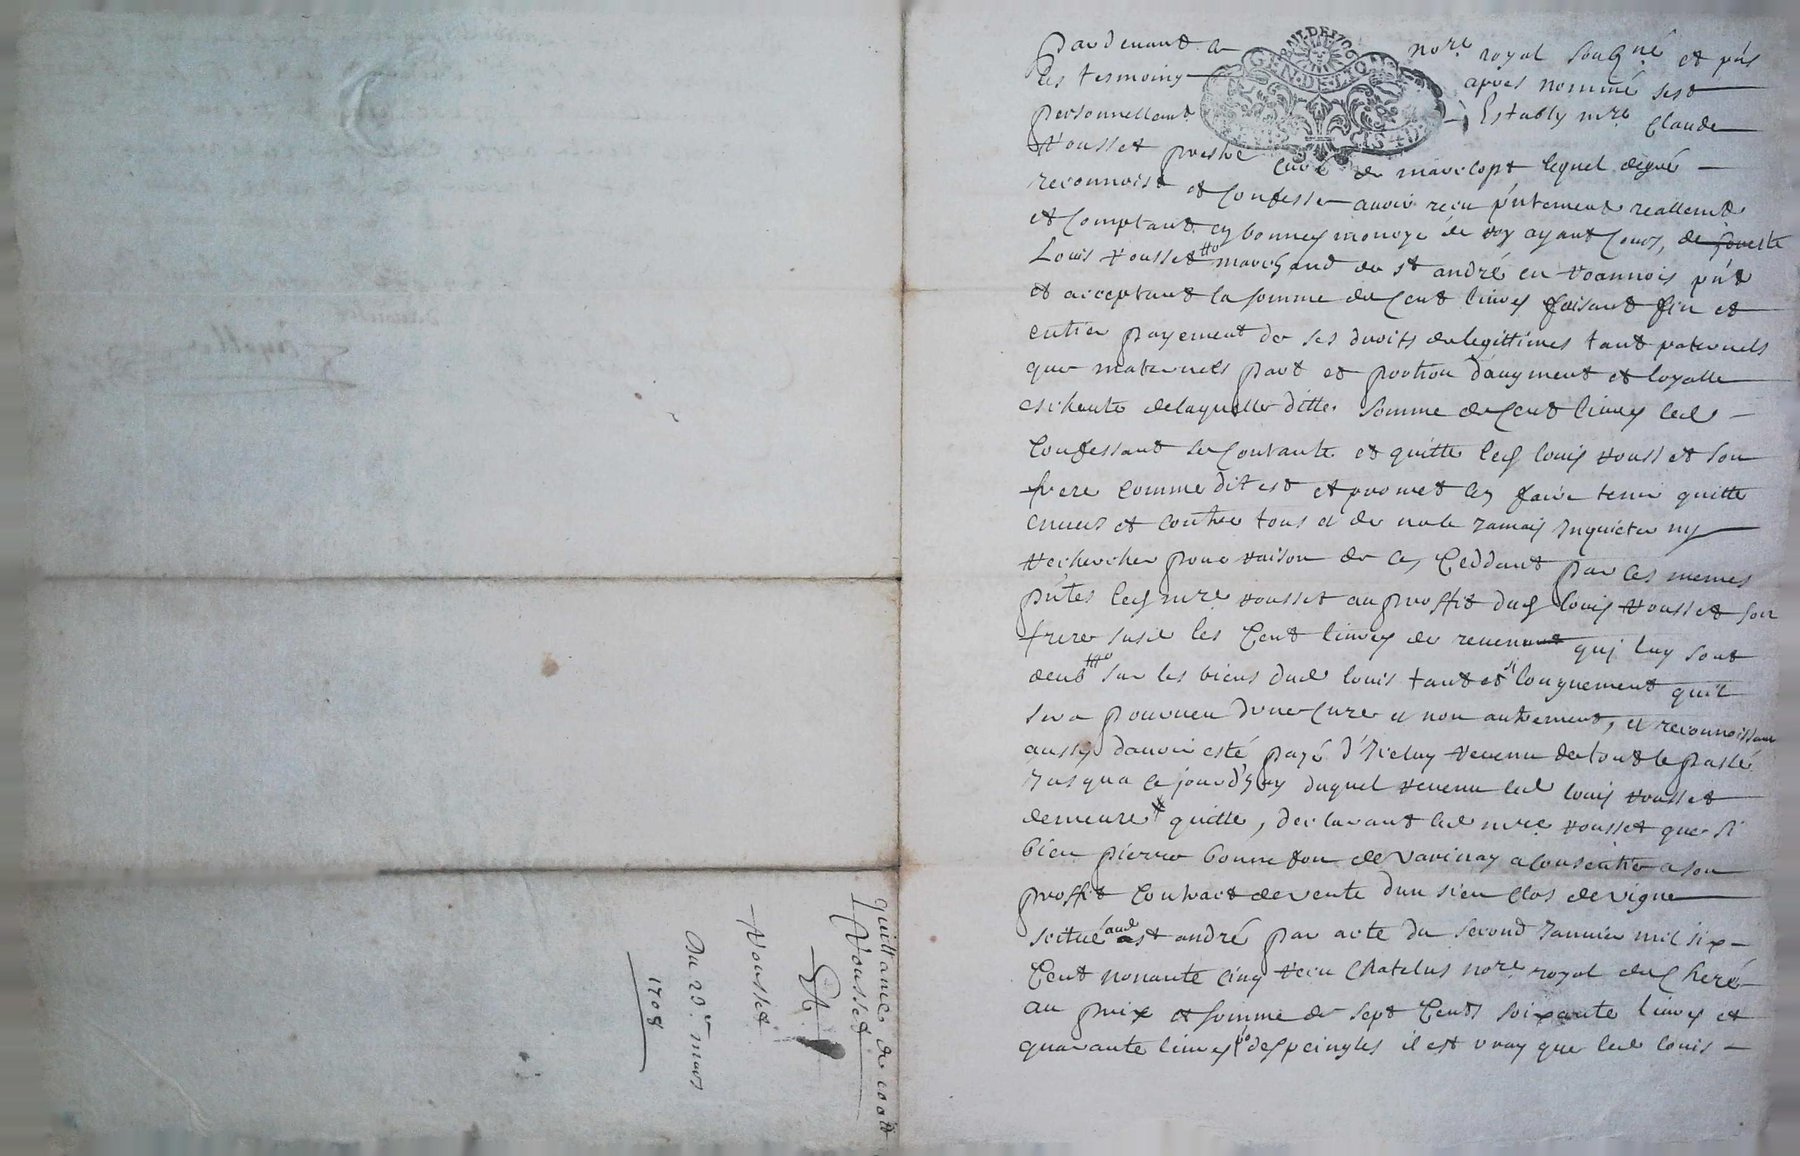 Pardevant le nore royal soubne et pñs
les tesmoings apres nommé sest
personnellemt Estably mre Claude
Rousset prestre curé de marclopt lequel degré
reconnoist et Confesse avoir reçu pñtement reallemt
et Comptant en bonnes monoye de roy ayant Cours, de
Louis Rousset marchand de st andré en Roannois pñt
et acceptant la somme de Cent livres faisant fin et
entier payement de ses droits de legittimes tant paternels
que maternels part et portion d'augment et loyalle
escheute de laquelle ditte somme de Cent livres led
Confessant se Contante et quitte led louis Rousset son
frere comme dit est et promet len faire tenir quitte
envers et contre tous et de ne le Jamais Inquieter ny
Rechercher pour raison de ce, Ceddant par ces memes
pñtes led mre Rousset au proffit dud louis Rousset son
frere susd les Cent livres de revenu qui luy sont
deub sur les biens dud louis tant et si longuement quil
sera pourveu dune Cure et non autrement, et reconnoissant
aussy davoir esté payé d'Iceluy revenu de tout le passé
Jusqua ce jourd'huy duquel revenu led louis Rousset
demeure quitte, declarant led mre Rousset que si
bien pierre bonnefon de Varinay a consentie a son
proffit Contract de vente dun sien clos de vigne
scitué aud st andré par acte du second Janvier mil six
Cent nonante cinq Receu Chatelus nore royal de
au prix et somme de sept Cents soixante livres et
quarante livres despeingles il est vray que led louis
quittance de
Rousset
Et
Rousset
Du 23e mars
1708
GEN. DE LION